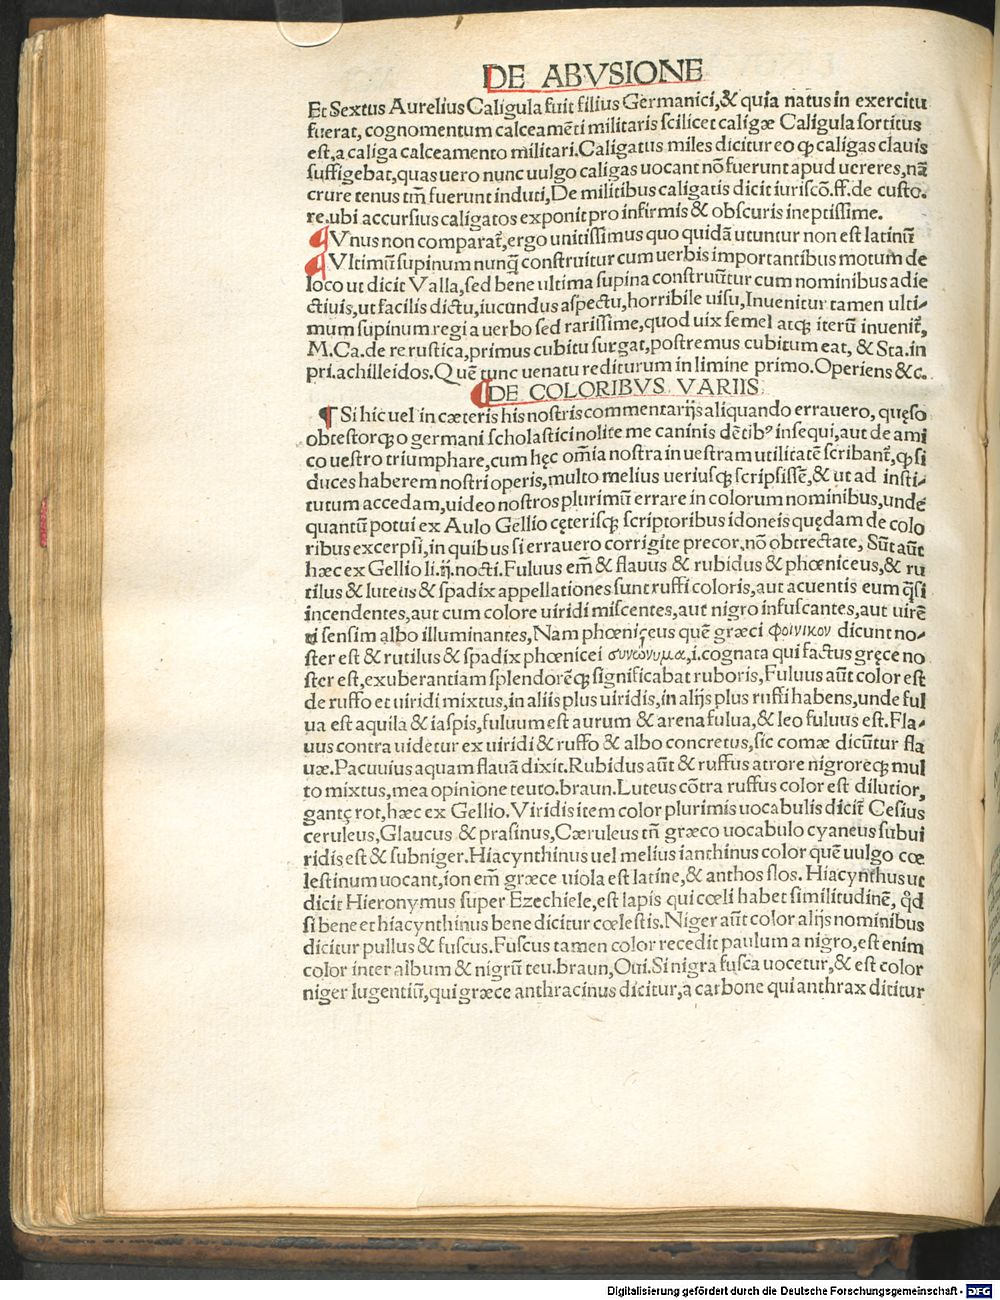 DE ABVSIONE
Et Sextus Aurelius Caligula fuit filius Germanici,& quia natus in exercitu
fuerat, cognomentum calceamēti militaris scilicet caligæ Caligula sortitus
est,a caliga calceamento militari.Caligatus miles dicitur eo ꝙ caligas clauis
suffigebat,quas uero nunc uulgo caligas uocant nō fuerunt apud ueteres,nā
crure tenus tm̄ fuerunt induti,De militibus caligatis dicit iuriscō.ff.de custo.
re.ubi accursius caligatos exponit pro infirmis & obscuris ineptissime.
¶ Vnus non comparat᷑,ergo unitissimus quo quidā utuntur non est latinū
¶ Vltimū supinum nunq̄ construitur cum uerbis importantibus motum de
loco ut dicit Valla,sed bene ultima supina construūtur cum nominibus adie
ctiuis,ut facilis dictu,iucundus aspectu,horribile uisu,Inuenitur tamen ulti-
mum supinum regi a uerbo sed rarissime,quod uix semel atqꝫ iterū inuenit᷑,
M.Ca.de re rustica,primus cubitu surgat,postremus cubitum eat, & Sta.in
pri.achilleidos.Quē tunc uenatu rediturum in limine primo.Operiens &c.
¶DE COLORIBVS VARIIS
¶ Si hic uel in cæteris his nostris commentarijs aliquando errauero, quęso
obtestorqꝫ o germani scholastici nolite me caninis dētibꝰ insequi,aut de ami
co uestro triumphare,cum hęc om̄ia nostra in uestram utilitatē scribant᷑,ꝙ si
duces haberem nostri operis,multo melius ueriusqꝫ scripsissē,& ut ad insti-
tutum accedam,uideo nostros plurimū errare in colorum nominibus,unde
quantū potui ex Aulo Gellio cęterisqꝫ scriptoribus idoneis quędam de colo
ribus excerpsi,in quibus si errauero corrigite precor,nō obtrectate, Sūt aūt
hæc ex Gellio li.ij.nocti.Fuluus em̄ & flauus & rubidus & phœniceus,& ru
tilus & luteus & spadix appellationes sunt ruffi coloris,aut acuentis eum q̄si
incendentes,aut cum colore uiridi miscentes,aut nigro infuscantes,aut uirē
ti sensim albo illuminantes,Nam phœniceus quē græci φοινικον dicunt no-
ster est & rutilus & spadix phœnicei συνώνυμα,i.cognata qui factus gręce no
ster est,exuberantiam splendorēqꝫ significabat ruboris,Fuluus aūt color est
de ruffo et uiridi mixtus,in aliis plus uiridis,in alijs plus ruffi habens,unde ful
ua est aquila & iaspis,fuluum est aurum & arena fulua,& leo fuluus est.Fla-
uus contra uidetur ex uiridi & ruffo & albo concretus,sic comæ dicūtur fla
uæ.Pacuuius aquam flauā dixit.Rubidus aūt & ruffus atrore nigroreqꝫ mul
to mixtus,mea opinione teuto.braun.Luteus cōtra ruffus color est dilutior,
gantç rot,hæc ex Gellio.Viridis item color plurimis uocabulis dicit᷑ Cesius
ceruleus,Glaucus & prasinus,Cæruleus tn̄ græco uocabulo cyaneus subui
ridis est & subniger.Hiacynthinus uel melius ianthinus color quē uulgo cœ
lestinum uocant,ion em̄ græce uiola est latine,& anthos flos. Hiacynthus ut
dicit Hieronymus super Ezechiele,est lapis qui cœli habet similitudinē, qd̄
si bene et hiacynthinus bene dicitur cœlestis.Niger aūt color alijs nominibus
dicitur pullus & fuscus.Fuscus tamen color recedit paulum a nigro,est enim
color inter album & nigrū teu.braun,Oui.Si nigra fusca uocetur,& est color
niger lugentiū,qui græce anthracinus dicitur,a carbone qui anthrax dicitur
Digitalisierung gefördert durch die Deutsche Forschungsgemeinschaft - DFG